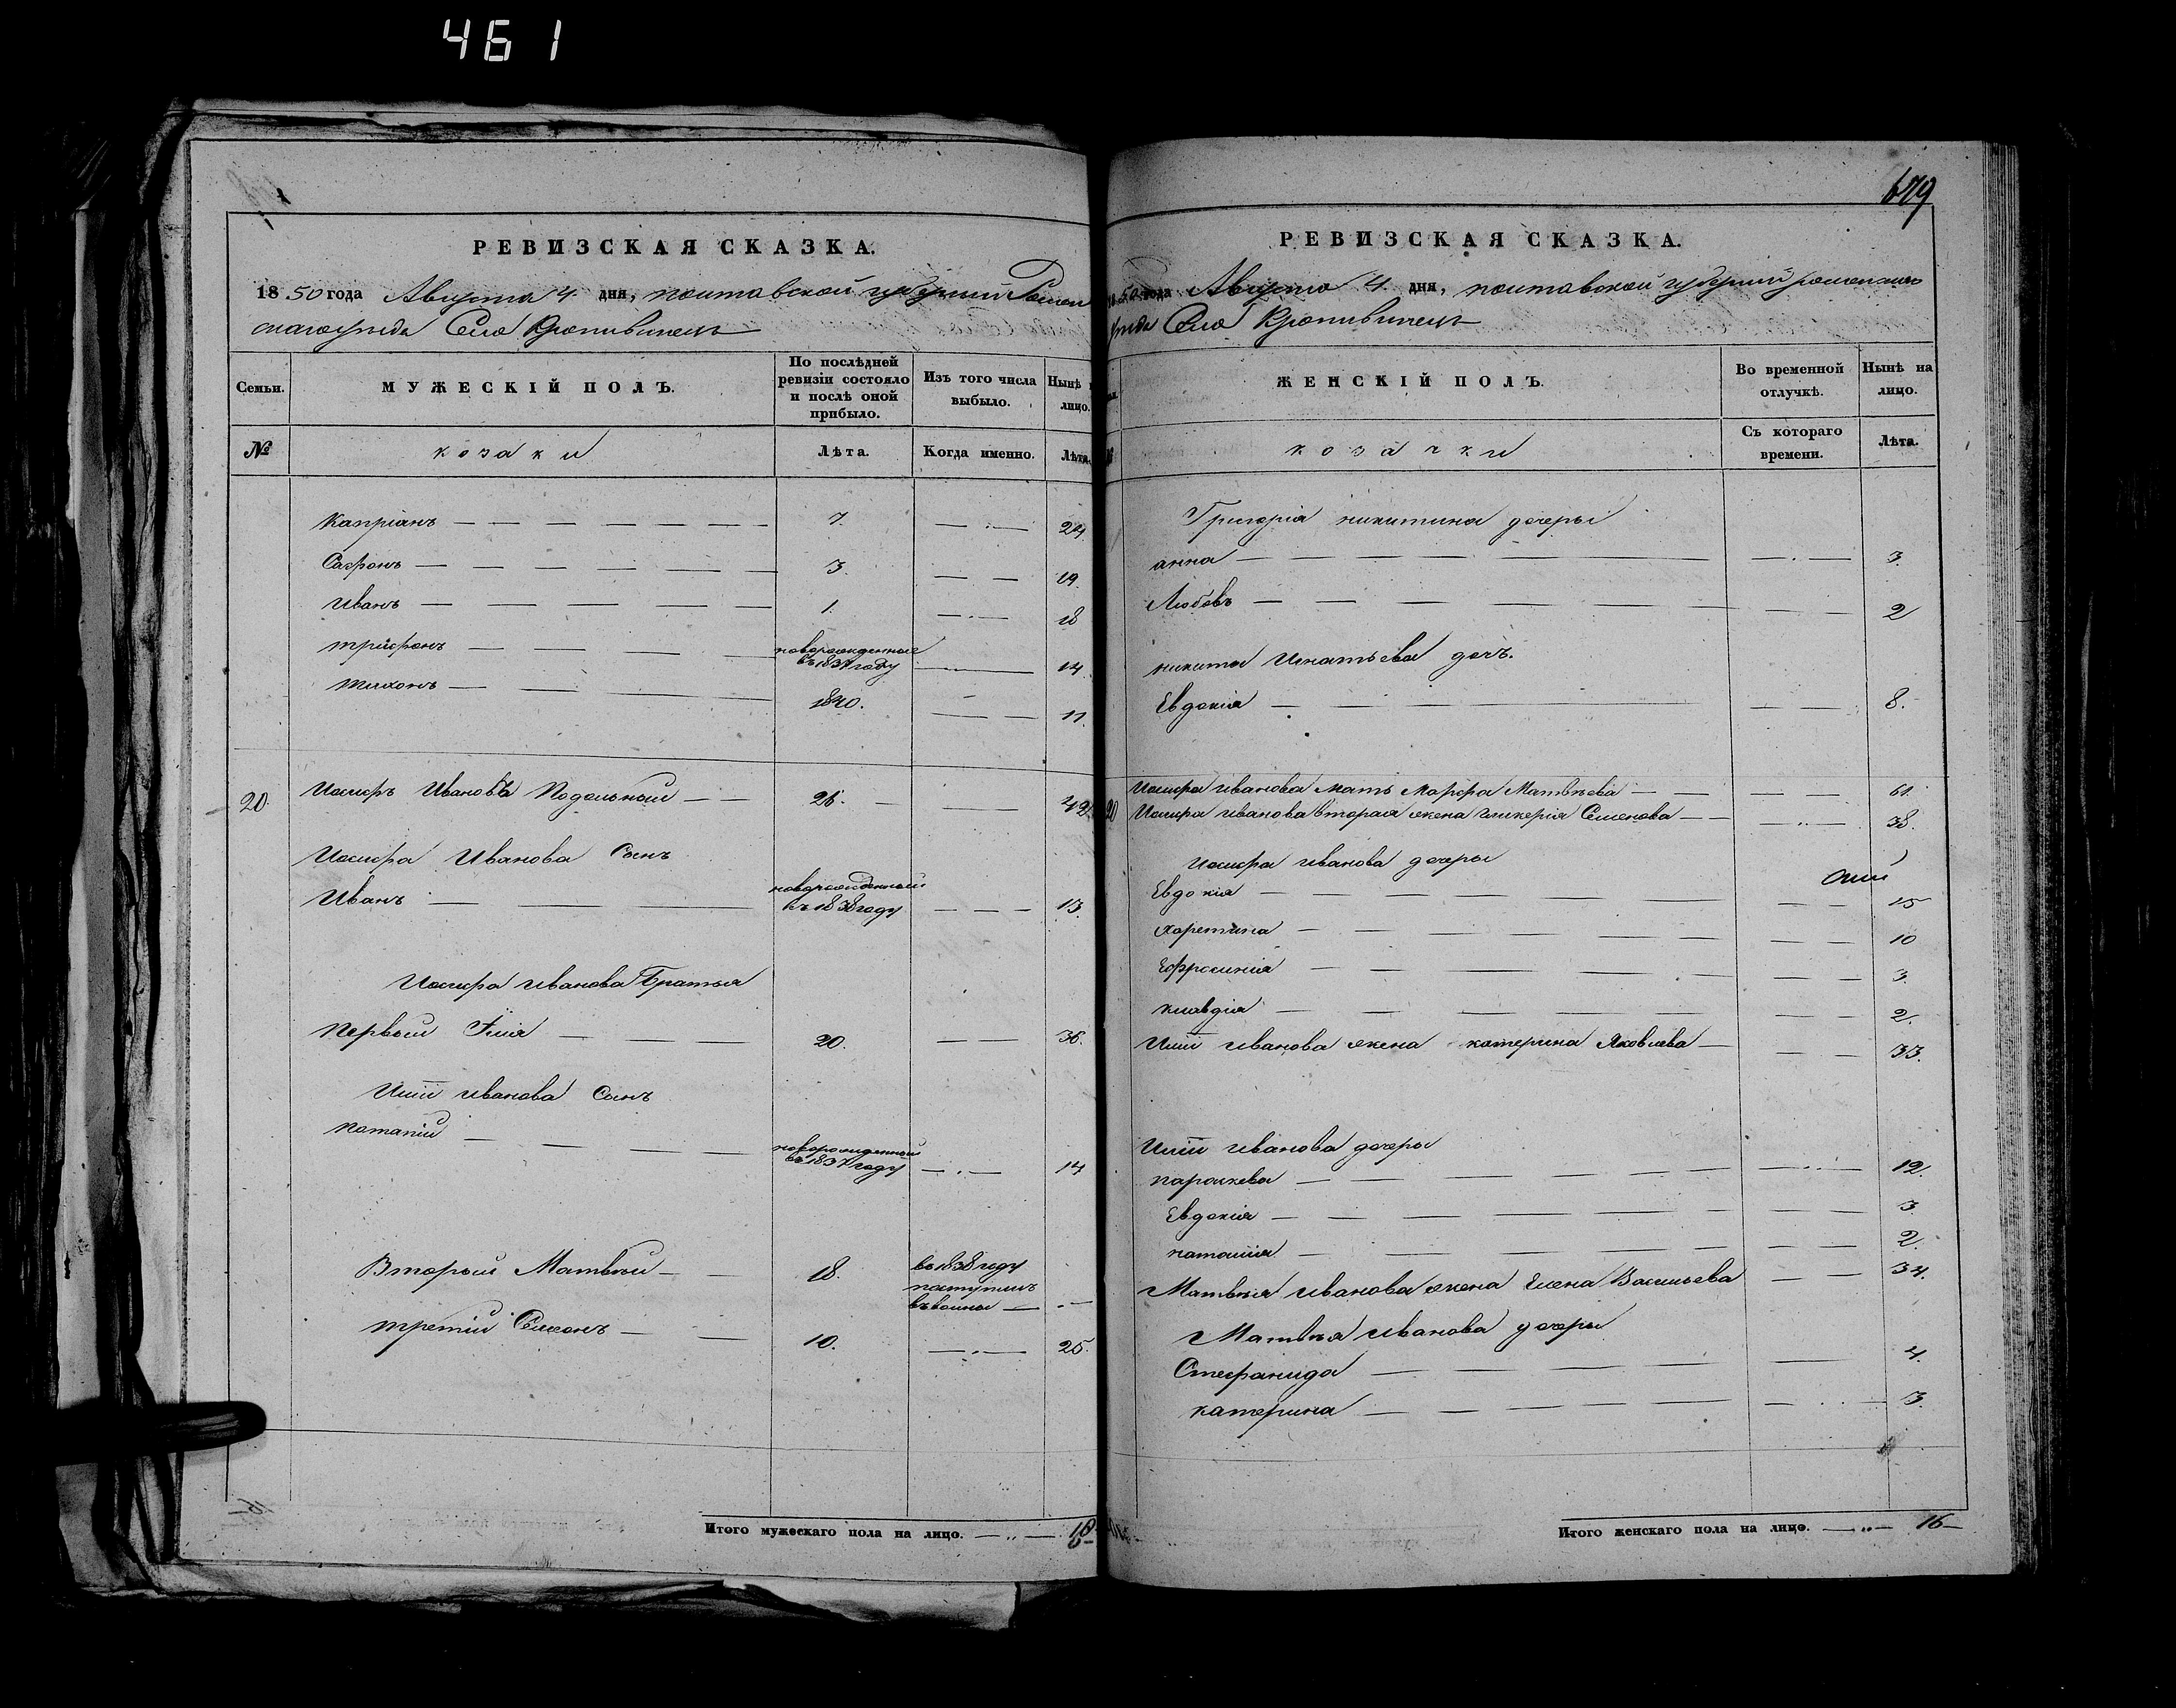 461
РЕВИЗСКАЯ СКАЗКА.
1850 года Августа 4. дня, полтавской губерніи Ромен
скаго уезда Село Кропивинецъ
Семьи.
МУЖЕСКІЙ ПОЛЪ.
По послѣдней ревизіи состояло и послѣ оной прибыло.
Изъ того числа выбыло.
Нынѣ на лицо.
№
козаки
Лѣта.
Когда именно.
Лѣта.
Капріанъ 7. 24
Сафронъ 3. 19
Иванъ 1. 18
трифонъ новорожденные въ 1837 году 14
тихонъ 1840. 11.
20. Иосифъ Ивановъ 26. 42
Иосифа Иванова Сынъ
Иванъ новорожденный въ 1838 году 13.
Иосифа иванова Братья
Первый Илія 20. 36.
Иліи иванова Сынъ
потапій новорожденный въ 1837 году 14
Вторый Матвей 18. въ 1838 году поступилъ
третій Семенъ 10. 25.
Итого мужескаго пола на лицо. 18
679
РЕВИЗСКАЯ СКАЗКА.
1850 года Августа 4. дня, полтавской губерніи роменскаго
уезда Село Кропивинецъ
ЖЕНСКІЙ ПОЛЪ.
Во временной отлучкѣ.
Нынѣ на лицо.
козачки
Съ котораго времени.
Лѣта.
Григорія никитина дочеры
анна 3.
Любовъ 2
никиты Игнатьева дочъ.
Евдокія 8.
20 Иосифа иванова мать Марфа Матвѣева 61.
Иосифа иванова вторая жена гликерія Семенова 38.
Иосифа иванова дочеры
Евдокія 15
Харетина 10
Ефросинія 3.
клавдія 2.
Иліи иванова жена катерина Яковлева 33.
Иліи иванова дочеры
параскева 12.
Евдокія 3
наталія 2.
Матвея иванова жена Елена Васильева 34.
Матвея иванова дочеры
Стефанида 4.
катерина 3.
Итого женскаго пола на лицо. 16